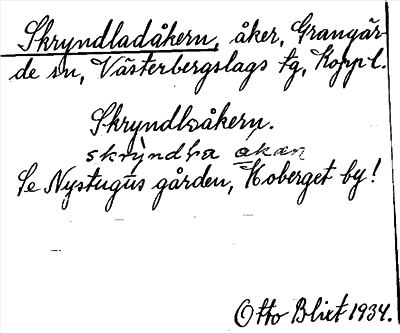 Skryndladåkern, åker, Grangär-
de sn, Västerbergslags tg, Koppl.
Skryndlsåkern.
Se Nystugus gården, Koberget by!
Otto Blixt 1934.